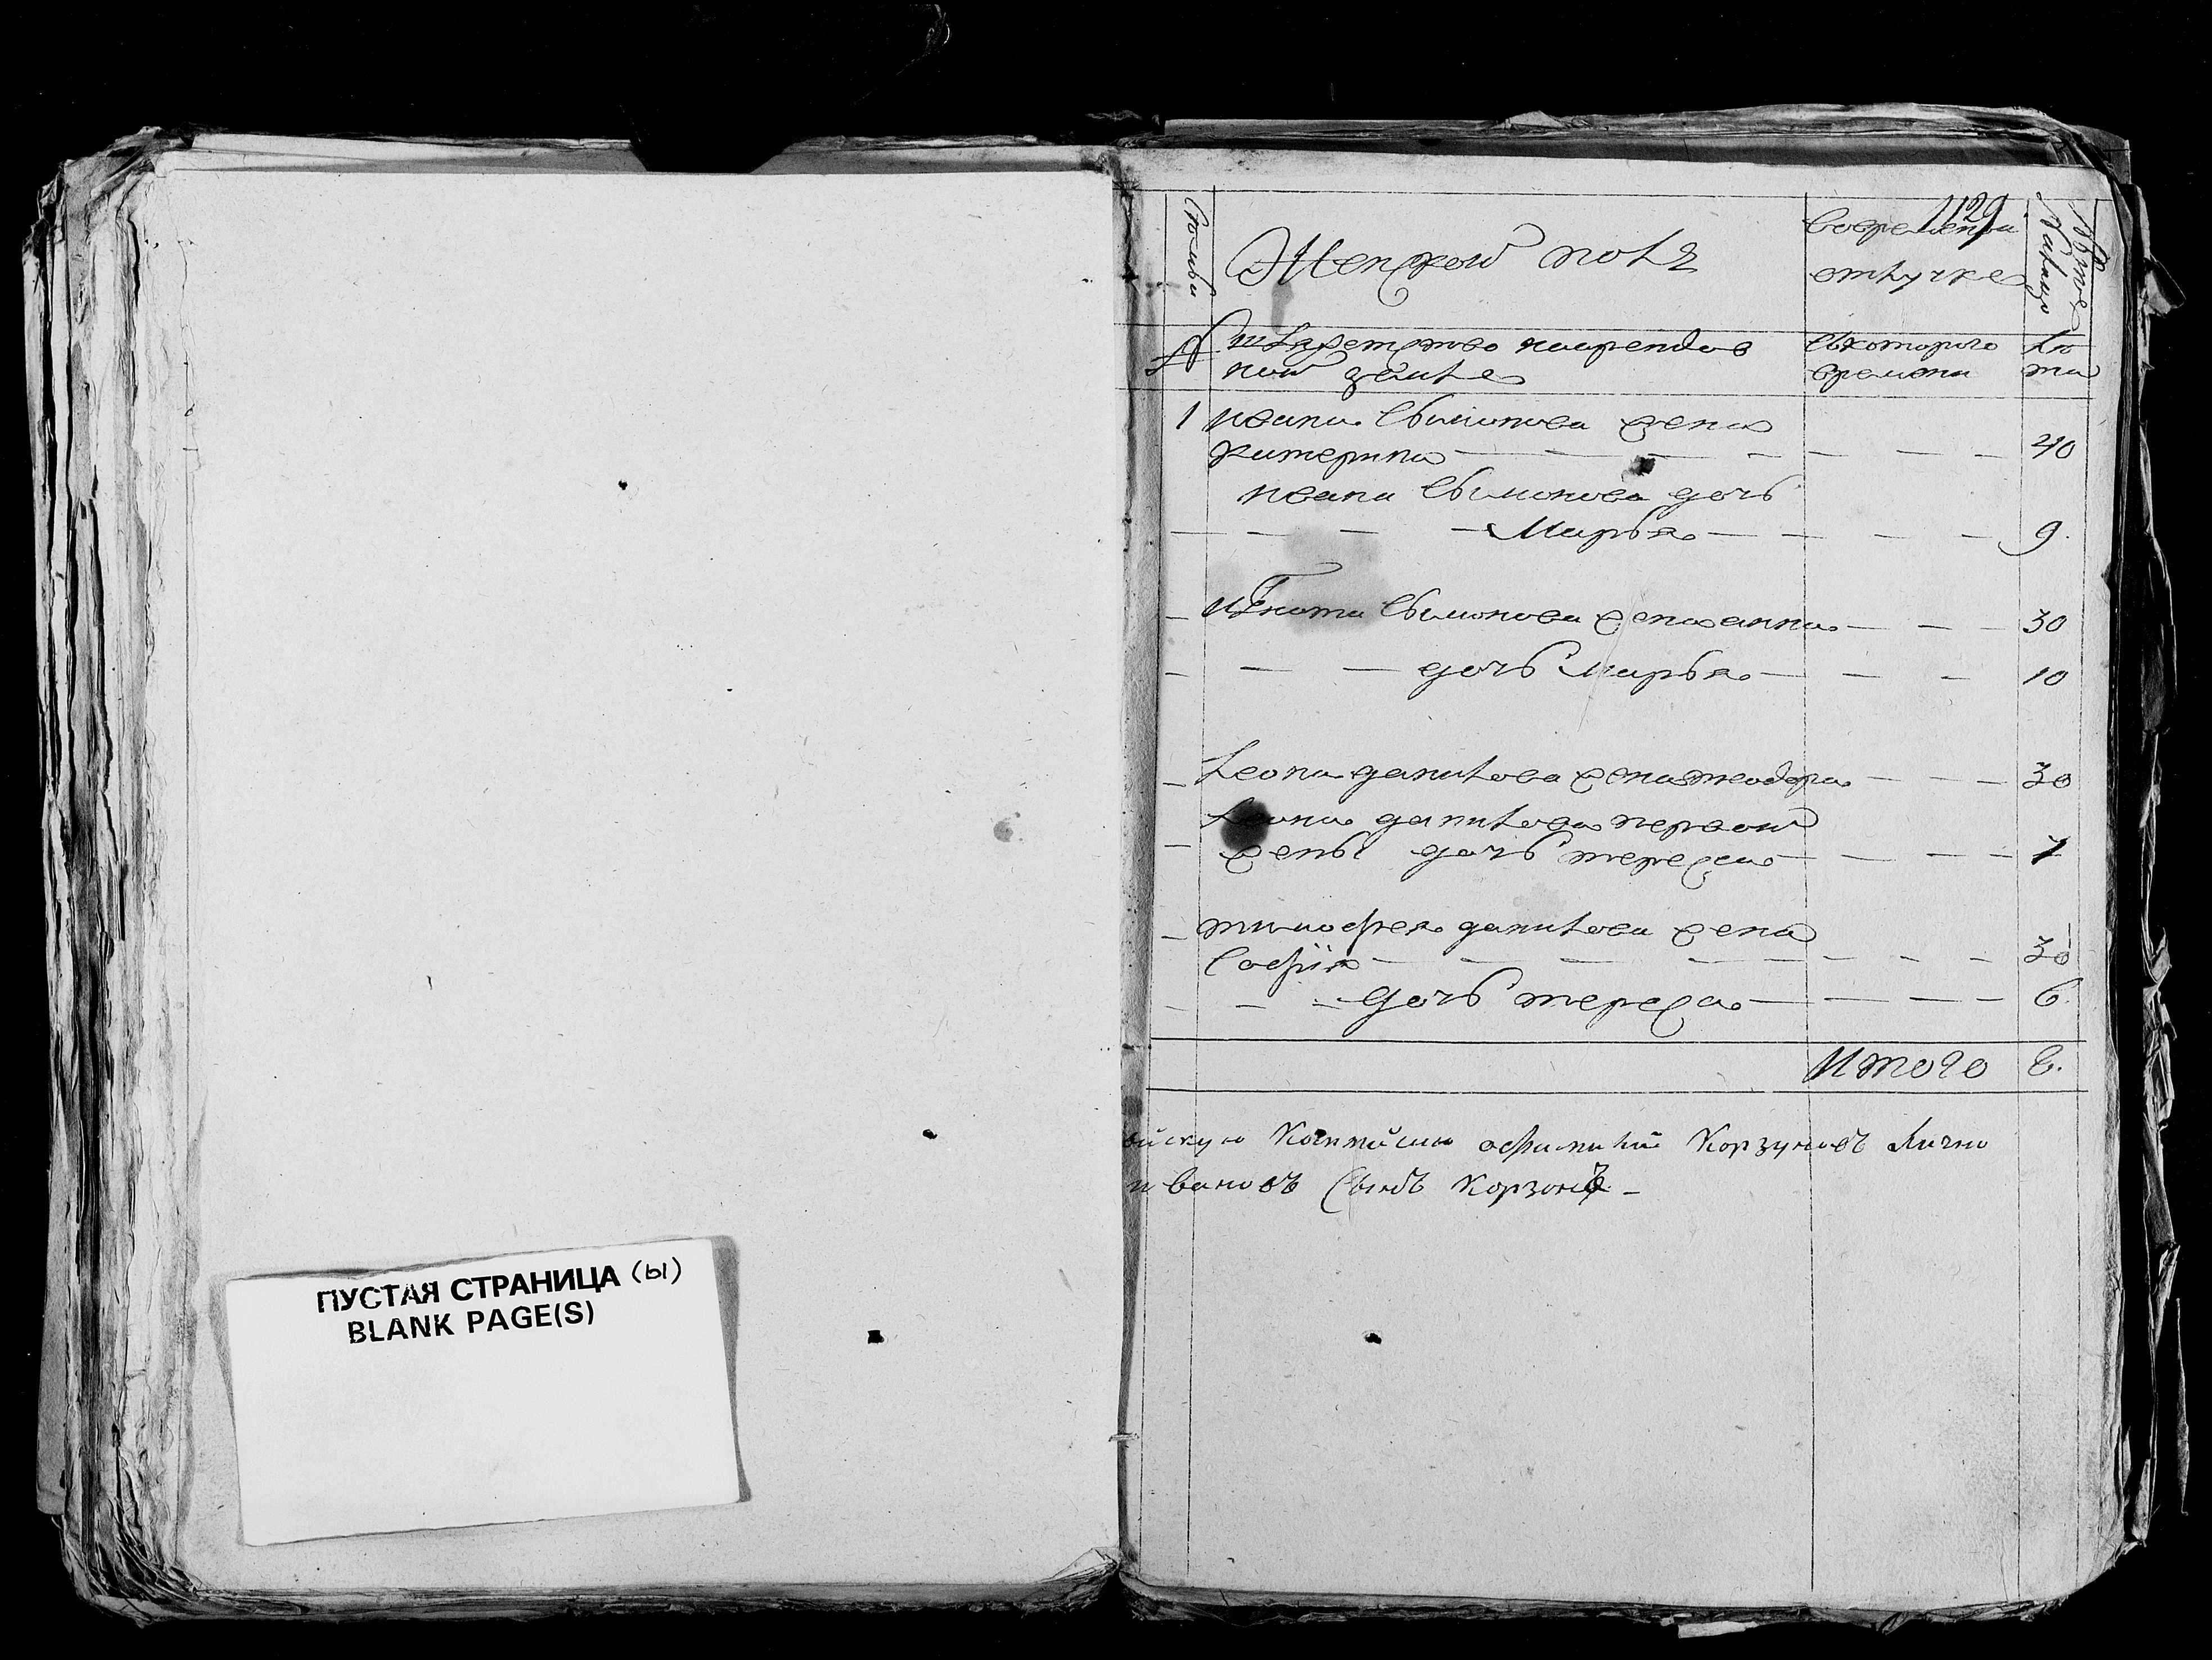 ПУСТАЯ СТРАНИЦА (ы)
BLANK PAGE(S)
1129
Женской полъ
вовременои
отлучке
шляхетство наарендов
ной земле
съкоторого
времени
лѣ
та
1 ивана Сымонова жена
катерина 40
ивана Сымонова дочь
Марья 9
игната Сымонова жена анна 30
дочь Марья 10
леона данилова жена теодора 30
леона данилова первой
жены дочь тереса 7
тимофея данилова жена
Софія 30
дочь тереса 6
Итого 8.
фамилій Корзуновъ лично
ивановъ Сынъ Корзонъ